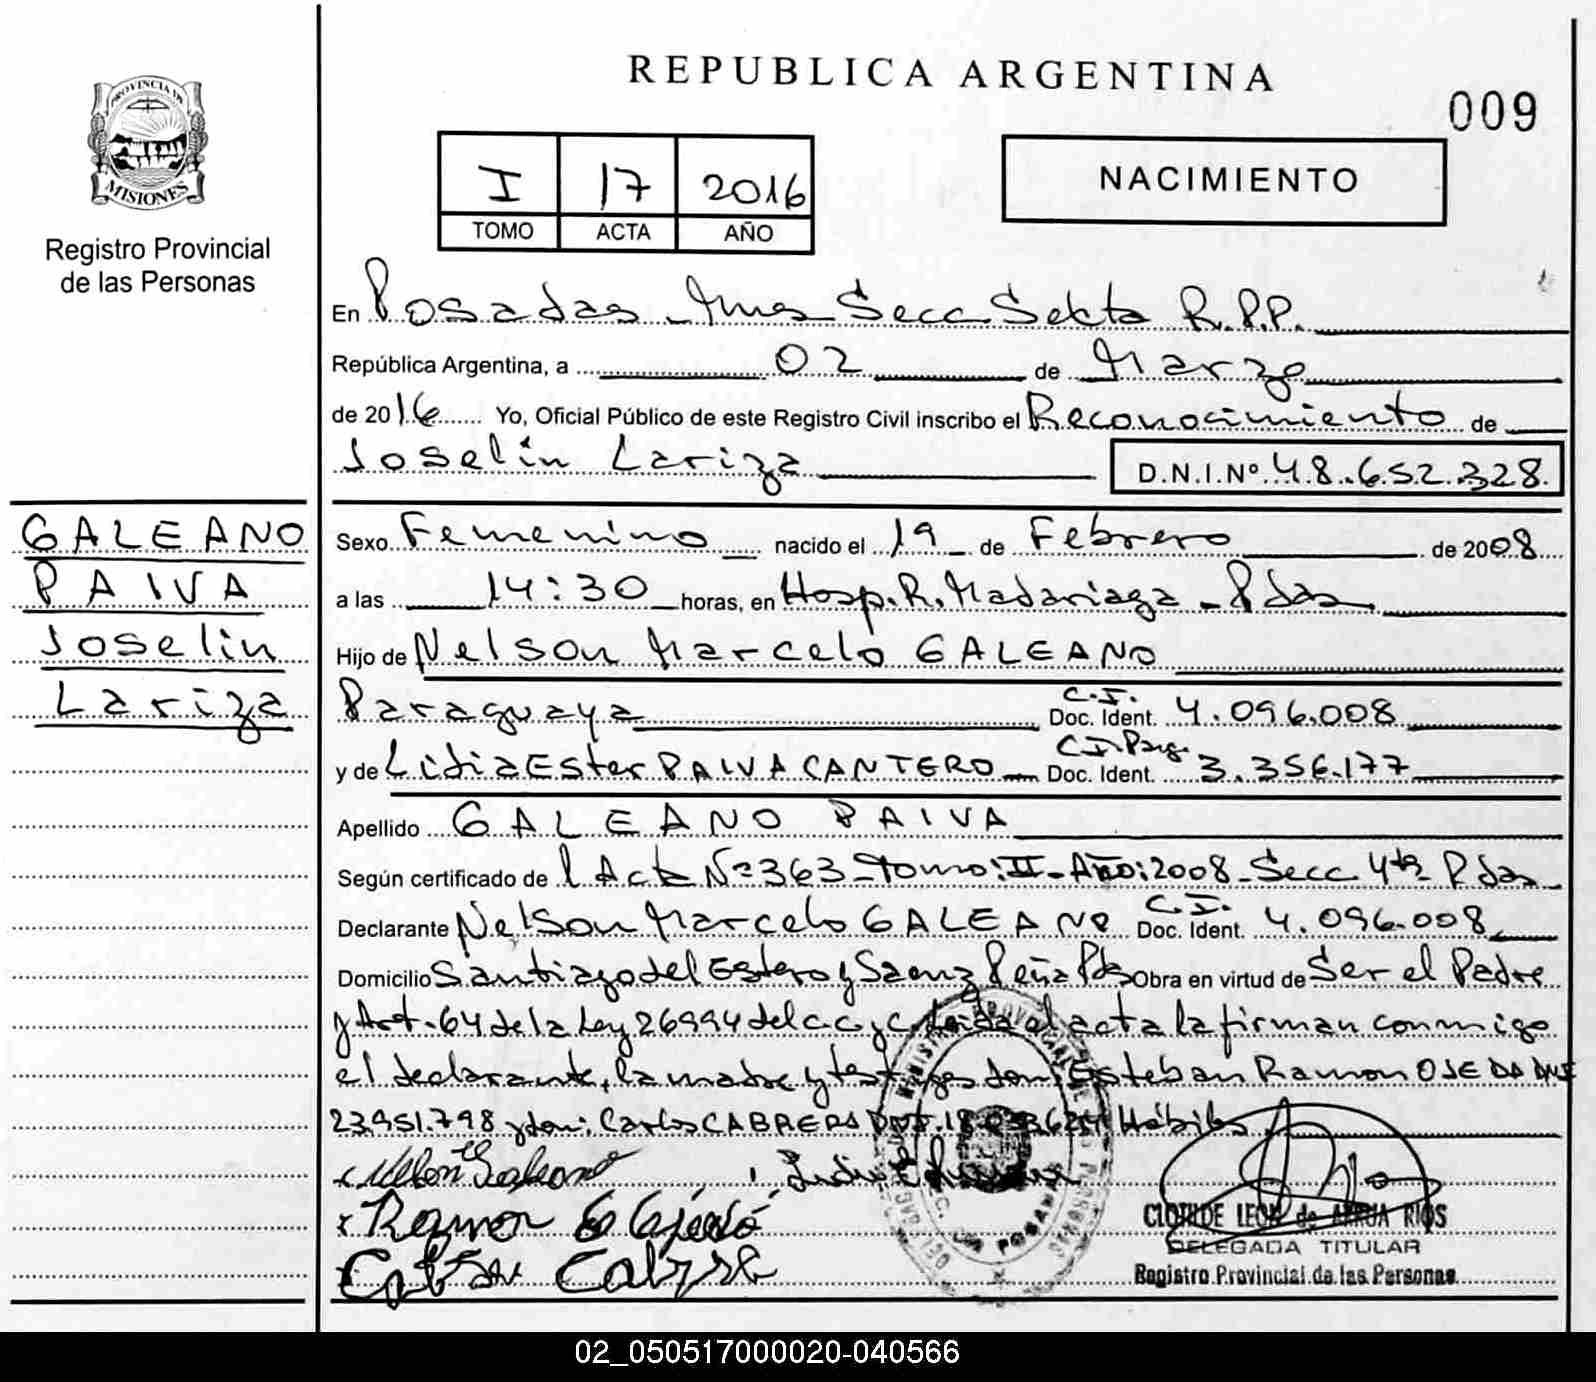 REPUBLICA ARGENTINA
009
PROVINCIA DE
MISIONES
Registro Provincial
de las Personas
I 17 2016
TOMO ACTA AÑO
NACIMIENTO
En Posadas Mnes Secc Sexta R.P.P.
República Argentina, a 02 de Marzo
de 2016 Yo, Oficial Público de este Registro Civil inscribo el Reconocimiento de
Joselin Lariza D.N.I.Nº 48.652.328.
GALEANO
PAIVA
Joselin
Lariza
Sexo Femenino nacido el 19 de Febrero de 2008
a las 14:30 horas, en Hosp. R. Madariaga - Pdas
Hijo de Nelson Marcelo GALEANO
Paraguaya C.I. Doc. Ident. 4.096.008
y de Lidia Ester PAIVA CANTERO C.I. Parg. Doc. Ident. 3.356.177
Apellido GALEANO PAIVA
Según certificado de l Acta Nº 363 - Tomo: II - Año: 2008 - Secc 4ta Pdas
Declarante Nelson Marcelo GALEANO C.I. Doc. Ident. 4.096.008
Domicilio Santiago del Estero y Saenz Peña Pdas Obra en virtud de Ser el Padre
y Art. 64 de la Ley 26994 del C.C. y C. Leida el acta la firman conmigo
el declarante, la madre y testigos don: Esteban Ramon OJEDA DNI
23.951.798 y don: Carlos CABRERA DNI. 18 Hábiles
Nelson Galeano
Ramon Ojeda
CLOTILDE LEON de ARRUA RIOS
DELEGADA TITULAR
Registro Provincial de las Personas
02_050517000020-040566